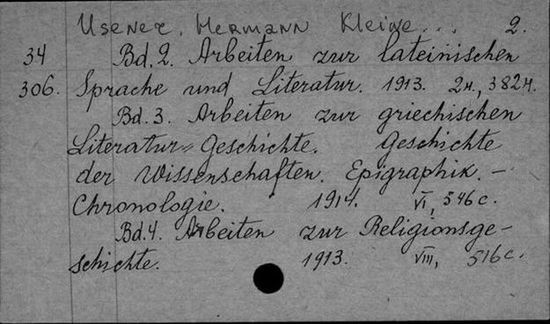 Usener, Hermann Kleine... 2.
34 Bd. 2. Arbeiten zur lateinischen
306. Sprache und Literatur. 1913. 2н., 382н.
Bd. 3. Arbeiten zur griechischen
Literatur-Geschichte. Geschichte
der Wissenschaften. Epigraphik. –
Chronologie. 1914. VI, 546 с.
Bd. 4. Arbeiten zur Religionsge-
schichte. 1913. VIII, 516 с.